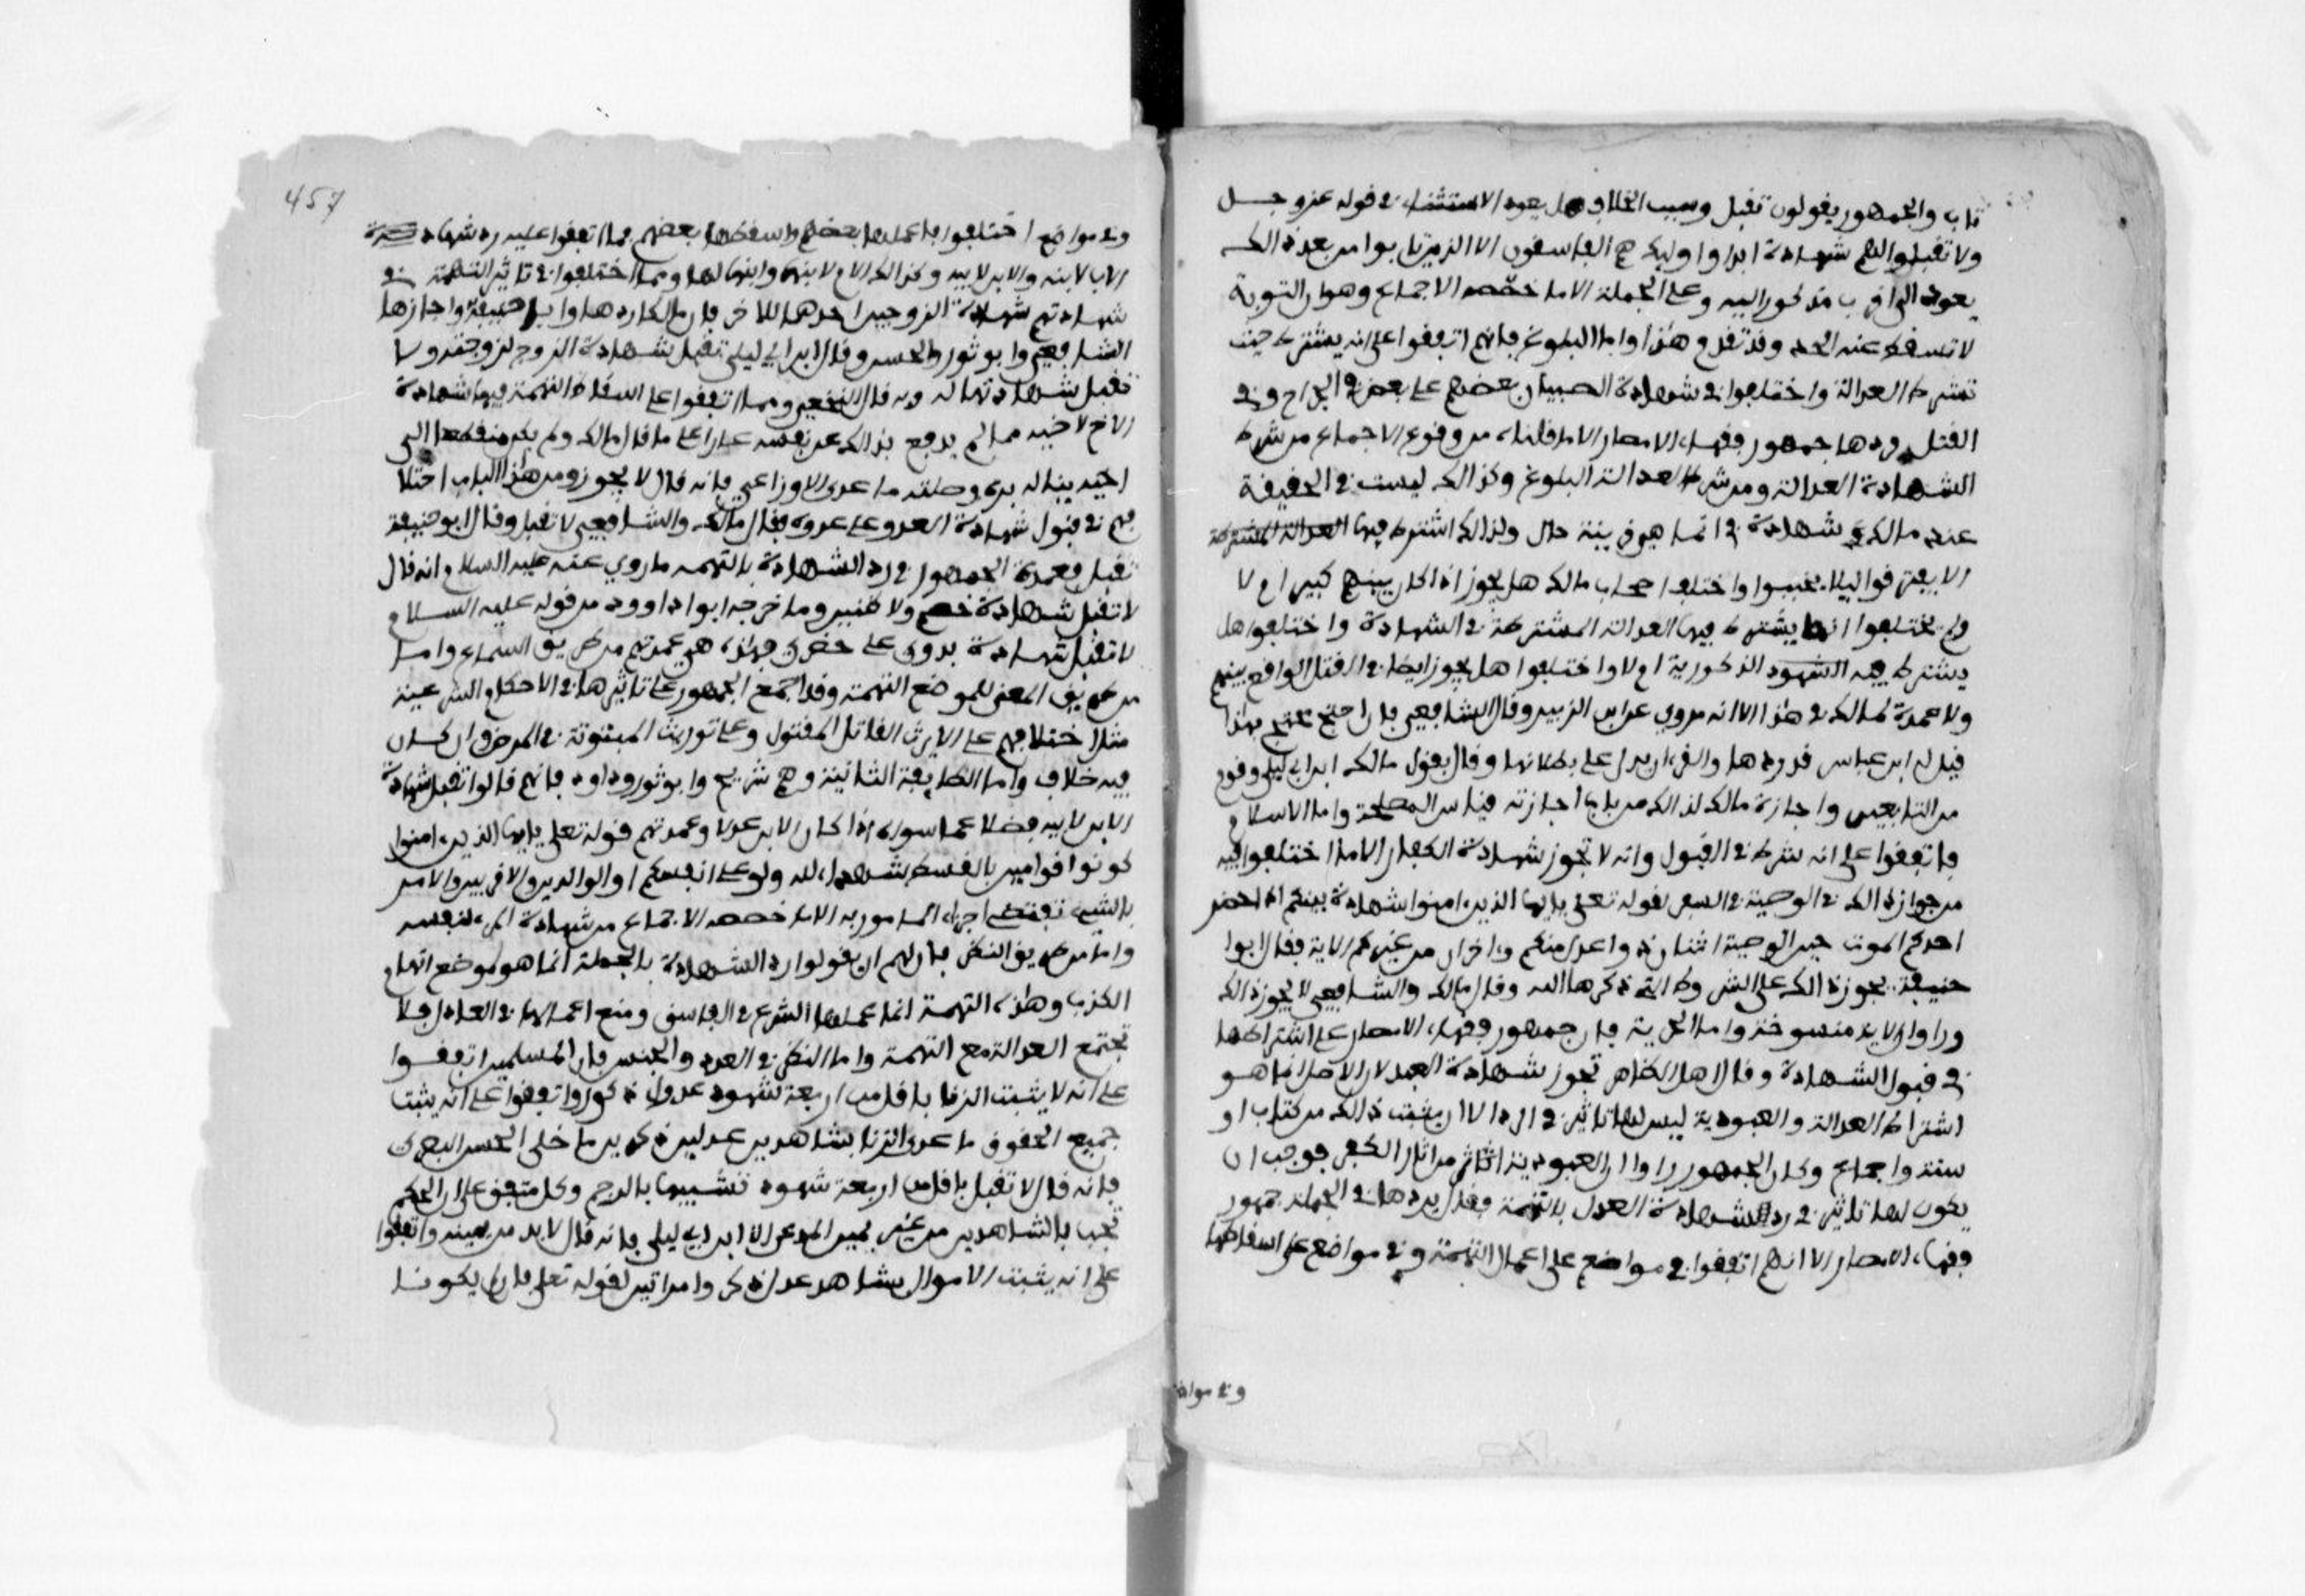 تاب والجمهور يقولون تقبل وسبب الخلاف هل يعود الاستثناء في قوله عز وجل
ولا تقبلوا لهم شهادة ابدا واوليك هم الفاسقون الا الذين تابوا من بعد ذالك
يعود الى اقرب مذكور اليه وعلى الجملة الا ما خصصه الاجماع وهو ان التوبة
لا تسقط عنه الحد وقد تقدم هذا واما البلوغ فانهم اتفقوا على انه يشترط حيث
تشترط العدالة واختلفوا في شهادة الصبيان بعضهم على بعض في الجراح وفي
القتل فردها جمهور فقهاء الامصار لما قلناه من وقوع الاجماع من شرط
الشهادة العدالة ومن شرط العدالة البلوغ وكذالك ليست في الحقيقة
عند مالك شهادة وانما هي قرينة حال ولذالك اشترط فيها العدالة المشترطة
ألا يفترقوا ليلا يجببوا واختلف اصحاب مالك هل يجوز اذا كان بينهم كبير ام لا
ولم يختلفوا انها يشترط فيها العدالة المشترطة في الشهادة واختلفوا هل
يشترط فيه الشهود الذكورية ام لا واختلفوا هل يجوز ايضا في القتل الواقع بينهم
ولا عمدة لمالك في هذا الا انه مروي عن ابن الزبير وقال الشافعي فان احتج محتج بهذا
قيل له ابن عباس قد ردها والقرءان يدل على بطلانها وقال بقول مالك ابن ابي ليلى وقوم
من التابعين واجازة مالك لذالك من باب اجازته قياس المصلحة واما الاسلام
فاتفقوا على انه شرط في القبول وانه لا تجوز شهادة الكفار الا ما اختلفوا فيه
من جواز ذالك في الوصية في السفر لقوله تعلى يايها الذين ءامنوا شهادة بينكم اذا حضر
احدكم الموت حين الوصية اثنان ذوا عدل منكم وءاخران من غيركم الاية فقال ابوا
حنيفة يجوز ذالك على الشروط التي ذكرها الله وقال مالك والشافعي لا يجوز ذالك
وراوا الاية منسوخة واما الحرية فان جمهور فقهاء الامصار على اشتراطها
في قبول الشهادة وقال اهل الظاهر تجوز شهادة العبد لان الاصل انما هو
اشتراط العدالة والعبودية ليس لها تاثير في الرد الا ان يثبت ذالك من كتاب او
سنة واجماع وكان الجمهور راوا ان العبودية اثر من اثار الكفر فوجب ان
يكون لها تاثير في رد الشهادة العدل بالتهمة فقال بردها في الجملة جمهور
فقهاء الامصار الا انهم اتفقوا في مواضع على اعمال التهمة وفي مواضع على اسقاطها
وفي مواضع
457
وفي مواضع اختلفوا فاعملها بعضهم واسقطها بعضهم فمما اتفقوا عليه رد شهادة
الاب لابنه والابن لابيه وكذالك الام لابنها وابنها لها ومما اختلفوا في تاثير التهمة في
شهادتهم شهادة الزوجين احدهما للاخر فان مالكا ردها وابا حنيفة واجازها
الشافعي وابو ثور والحسن وقال ابن ابي ليلى تقبل شهادة الزوج لزوجته ولا
تقبل شهادتها له وبه قال النخعي ومما اتفقوا على اسقاط التهمة فيه شهادة
الاخ لاخيه مما لم يدفع بذالك عن نفسه عارا على ما قال مالك ولم يكن منقطعا الى
اخيه يناله بره وصلته ما عدى الاوزاعي فانه قال لا يجوز ومن هذا الباب اختلا
فهم في قبول شهادة العدو على عدوه فقال مالك والشافعي لا تقبل وقال ابو حنيفة
تقبل فعمدة الجمهور في رد الشهادة بالتهمة ما روي عنه عليه السلام انه قال
لا تقبل شهادة خصم ولا ظنين وما خرجه ابوا داوود من قوله عليه السلام
لا تقبل شهادة بدوي على حضري فهذه هي عمدتهم من طريق السماع واما
من طريق المعنى للموضع التهمة وقد اجمع الجمهور على تاثيرها في الاحكام الشرعية
مثل اختلافهم على الا يرث القاتل المقتول وعلى توريث المبتوتة في المرض وان كان
فيه خلاف واما الطايفة الثانية وهم شريح وابو ثور وداود فانهم قالوا تقبل شهادة
الابن لابيه فضلا عما سواه اذا كان الابن عدلا وعمدتهم قوله تعلى يايها الذين ءامنوا
كونوا قوامين بالقسط شهداء لله ولو على انفسكم او الوالدين والاقربين والامر
بالشيء يقتضي اجزاء المامور به الا ما خصصه الاجماع من شهادة المرء لنفسه
واما من طريق النظر فان لهم ان يقولوا رد الشهادة بالجملة انما هو لموضع اتهام
الكذب وهذه التهمة انما عملها الشرع في الفاسق ومنع اعمالها في العادل فلا
تجتمع العدالة مع التهمة واما النظر في العدد والجنس فان المسلمين اتفقوا
على انه لا يثبت الزنا باقل من اربعة شهود عدول ذكور واتفقوا على انه يثبت
جميع الحقوق ما عدى الزنا بشاهدين عدلين ذكرين ما خلى الحسن البصري
فانه قال لا تقبل باقل من اربعة شهود تشبيها بالرجم وكل متفق على ان الحكم
يجب بالشاهدين من غير يمين المدعي الا ابن ابي ليلى فانه قال لا بد من يمينه واتفقوا
على انه يثبت الاموال بشاهد عدل ذكر وامراتين لقوله تعلى فان لم يكونا